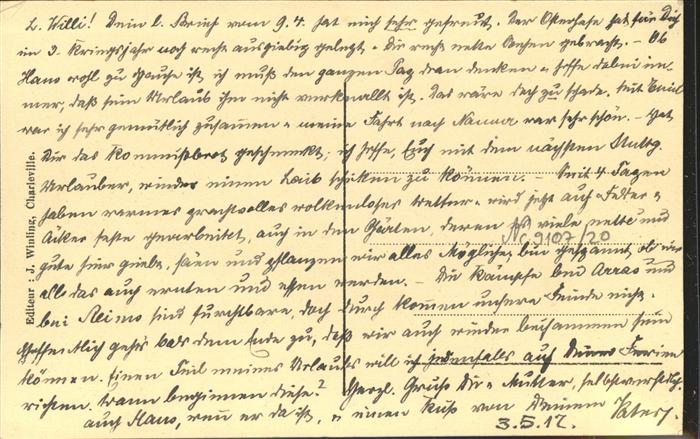 L. Willi! Dein l. Brief vom 9.4. hat mich sehr gefreut. Der Osterhase hat für Dich
im 3. Kriegsjahr noch recht ausgiebig gelegt u. Dir recht nette Sachen gebracht. – Ob
Hans wohl zu Hause ist, ich muß den ganzen Tag dran denken u. hoffe dabei im-
mer, daß sein Urlaub ihm nicht verknallt ist. Das wäre doch zu schade. Mit Emil
war ich sehr gemütlich zusammen u. meine Fahrt nach Namur war sehr schön. – Hat
Dir das Kommißbrot geschmeckt; ich hoffe, Euch mit dem nächsten Stuttg.
Urlauber, wieder einen Laib schicken zu können. – Seit 4 Tagen
haben warmes prachtvolles wolkenloses Wetter u. wird jetzt auf Felder u.
Äcker feste gearbeitet, auch in den Gärten, deren es viele nette und
gute hier giebt, säen und pflanzen wir alles Mögliche, bin gespannt, ob wir
alles das auch ernten und essen werden. – Die Kämpfe bei Arras und
bei Reims sind furchtbare, doch durch kommen unsere Feinde nicht.
Hoffentlich gehts bald dem Ende zu, daß wir auch wieder beisammen sein
können. Einen Teil meines Urlaubs will ich jedenfalls auf Deine Ferien
richten. Wann beginnen diese? Herzl. Gruß Dir u. Mutter, selbstverständl.
auch Hans, wenn er da ist, u. einen Kuß von Deinem Vater.
3.5.17.
Nr. 9107/20
Editeur : J. Winling, Charleville.